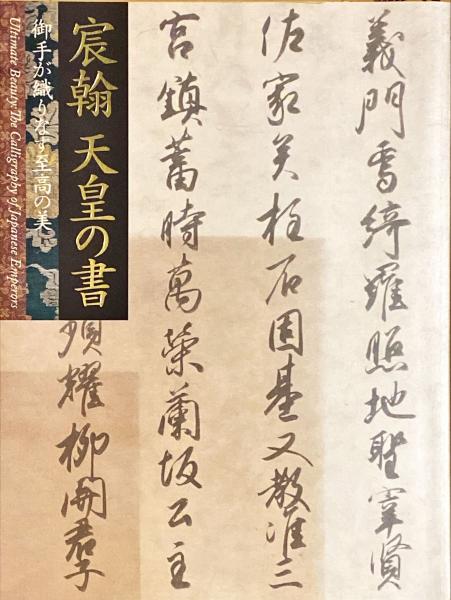 宸翰 天皇の書
御手が織りなす至高の美
Ultimate Beauty: The Calligraphy of Japanese Emperors
義門雩綺羅照地聖宰賢
佐家美柱石固基又敎准三
宮鎮蓄時萬榮蘭坂公主
耀柳開君子